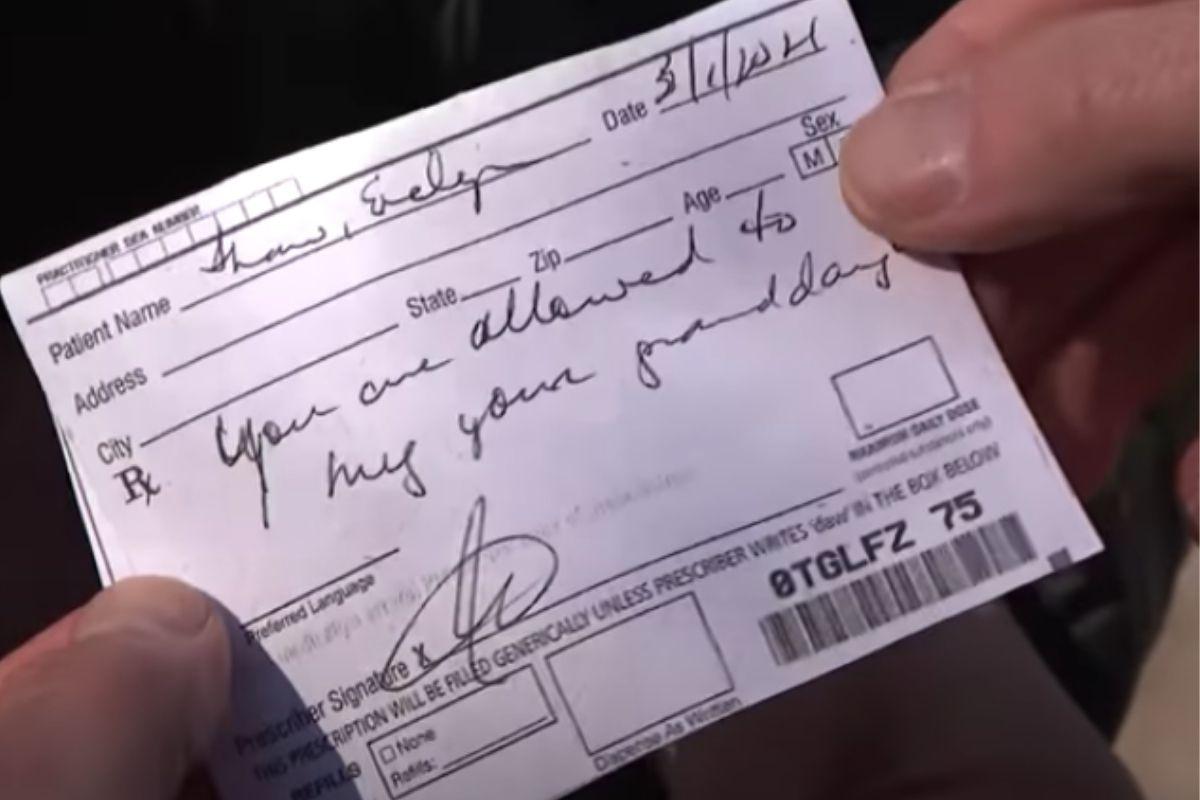 PRACTITIONER DEA NUMBER
Patient Name Shaw, Evelyn Date 3/1/2021
Address Sex M
City State Zip Age
Rx You are allowed to
hug your granddaug
Preferred Language
Prescriber Signature X
THIS PRESCRIPTION WILL BE FILLED GENERICALLY UNLESS PRESCRIBER WRITES 'daw' IN THE BOX BELOW
MAXIMUM DAILY DOSE
(controlled substances only)
0TGLFZ 75
REFILLS
None
Refills:
Dispense As Written